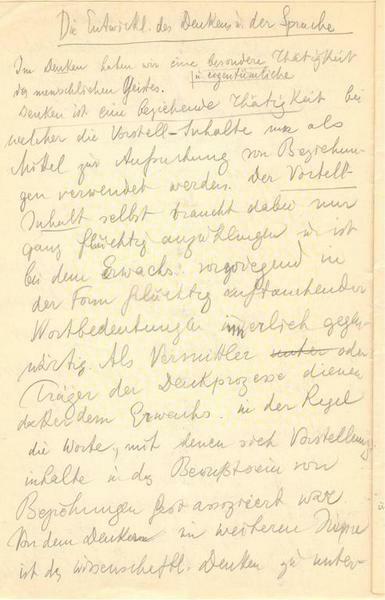 Die Entwickl. des Denkens u. der Sprache
Im Denken haben wir eine besondere Thätigkeit
u eigentümliche
des menschlichen Geistes.
Denken ist eine beziehende Thätigkeit bei
welcher die Vorstell-Inhalte nur als
Mittel zur Aufsuchung von Beziehun-
gen verwendet werden. Der Vorstell-
Inhalt selbst braucht dabei nur
ganz flüchtig anzuklingen u ist
bei dem Erwachs. vorwiegend in
der Form flüchtig auftauchender
Wortbedeutungen innerlich gegen-
wärtig. Als Vermittler oder
Träger der Denkprozesse dienen
daher dem Erwachs. in der Regel
die Worte, mit denen sich Vorstellung
inhalte in das Bewußtsein von
Beziehungen fest assoziiert
Von dem Denken im weiteren Sinne
ist das wissenschaftl. Denken zu unter-